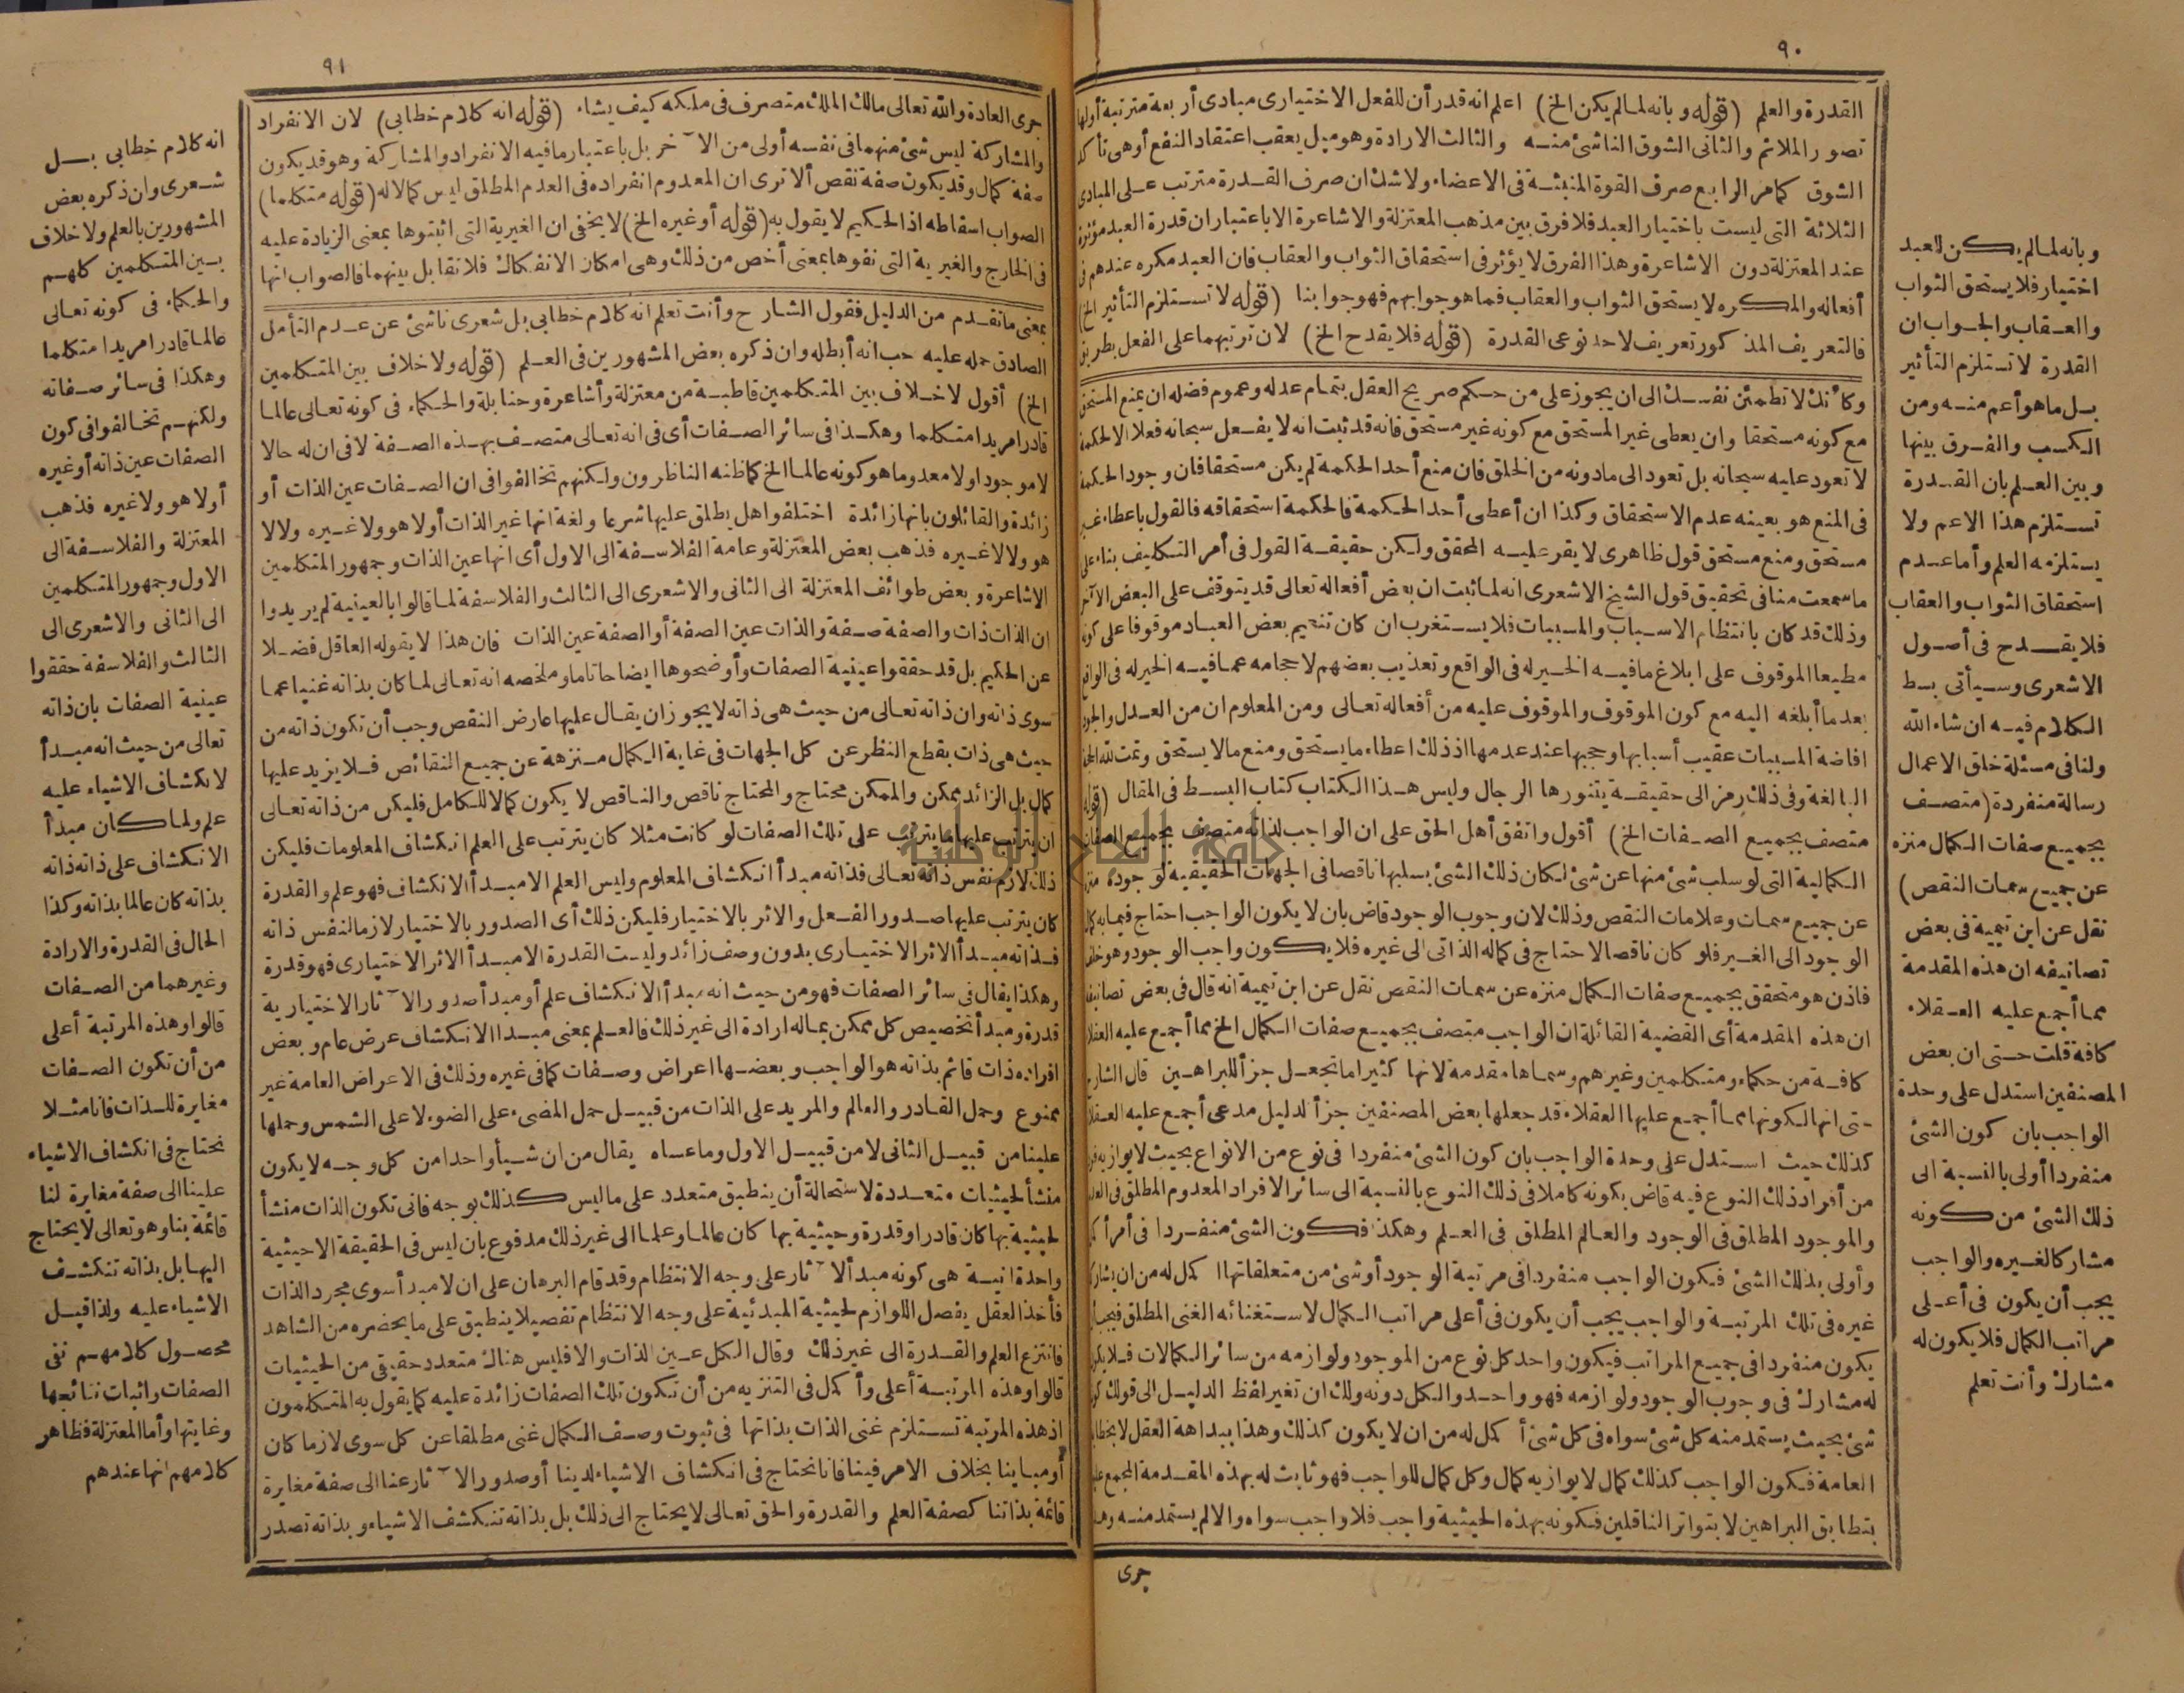 ٩٠
القدرة والعلم (قوله وبانه لمالم يكن الخ) اعلم انه قدر أن للفعل الاختيارى مبادى أربعة مترتبة أولها
تصور الملائم والثانى الشوق الناشئ منه والثالث الارادة وهو ميل يعقب اعتقاد النفع أو هى تأكد
الشوق كامر الرابع صرف القوة المنبثة فى الاعضاء ولاشك ان صرف القدرة مترتب على المبادى
الثلاثة التى ليست باختيار العبد فلا فرق بين مذهب المعتزلة والاشاعرة الا باعتبار ان قدرة العبد مؤثرة
عند المعتزلة دون الاشاعرة وهذا الفرق لا يؤثر فى استحقاق الثواب والعقاب فان العبد مكره عندهم فى
أفعاله والمكره لا يستحق الثواب والعقاب فما هو جوابهم فهو جوابنا (قوله لا تستلزم التأثير الخ)
فالتعريف المذكور تعريف لاحد نوعى القدرة (قوله فلا يقدح الخ) لان ترتبهما على الفعل بطريق
وكأنك لا تطمئن نفسك الى ان يجوز على من حكم صريح العقل بتمام عدله وعموم فضله ان يمنع المستحق
مع كونه مستحقا وان يعطى غير المستحق مع كونه غير مستحق فانه قد ثبت انه لا يفعل سبحانه فعلا الا لحكمة
لا تعود عليه سبحانه بل تعود الى مادونه من الخلق فان منع أحد الحكمة لم يكن مستحقا فان وجود الحكمة
فى المنع هو بعينه عدم الاستحقاق وكذا ان أعطى أحد الحكمة فالحكمة استحقاقه فالقول باعطاء غير
مستحق ومنع مستحق قول ظاهرى لا يقر عليه المحقق ولكن حقيقة القول فى أمر التكليف بناء على
ما سمعت منا فى تحقيق قول الشيخ الاشعرى انه لما ثبت ان بعض أفعاله تعالى قد يتوقف على البعض الآخر
وذلك قد كان بانتظام الاسباب والمسببات فلا يستغرب ان كان تنعيم بعض العباد موقوفا على كونه
مطيعا الموقوف على ابلاغ مافيه الخير له فى الواقع وتعذيب بعضهم لاحجامه عمافيه الخير له فى الواقع
بعدما أبلغه اليه مع كون الموقوف والموقوف عليه من أفعاله تعالى ومن المعلوم ان من العدل والجود
افاضة المسببات عقيب أسبابها وحجبها عند عدمها اذ ذلك اعطاء ما يستحق ومنع مالا يستحق وتمت لله الحجة
البالغة وفى ذلك رمز الى حقيقة يتنورها الرجال وليس هذا الكتاب كتاب البسط فى المقال (قوله
متصف بجميع الصفات الخ) أقول واتفق أهل الحق على ان الواجب لذاته متصف بجميع الصفات
الكمالية التى لو سلب شئ منها عن شئ لكان ذلك الشئ بسلبها ناقصا فى الجهات الحقيقية لوجوده منزه
عن جميع سمات وعلامات النقص وذلك لان وجوب الوجود قاض بان لا يكون الواجب احتاج فيما به كمال
الوجود الى الغير فلو كان ناقصا لاحتاج فى كماله الذاتى الى غيره فلا يكون واجب الوجود وهو خلف
فاذن هو متحقق بجميع صفات الكمال منزه عن سمات النقص نقل عن ابن تيمية انه قال فى بعض تصانيفه
ان هذه المقدمة أى القضية القائلة ان الواجب متصف بجميع صفات الكمال الخ مما أجمع عليه العقلاء
كافة من حكماء ومتكلمين وغيرهم وسماها مقدمة لانها كثيرا ما تجعل جزأ للبراهين قال الشارح
حتى انها لكونها مما أجمع عليها العقلاء قد جعلها بعض المصنفين جزأ لدليل مدعى أجمع عليه العقلاء
كذلك حيث استدل على وحدة الواجب بان كون الشئ منفردا فى نوع من الانواع بحيث لا يوازيه فرد
من أفراد ذلك النوع فيه قاض بكونه كاملا فى ذلك النوع بالنسبة الى سائر الافراد المعدوم المطلق فى العدم
والموجود المطلق فى الوجود والعالم المطلق فى العلم وهكذا فكون الشئ منفردا فى أمر أكمل
وأولى بذلك الشئ فيكون الواجب منفردا فى مرتبة الوجود أو شئ من متعلقاتها أكمل له من ان يشاركه
غيره فى تلك المرتبة والواجب يجب أن يكون فى أعلى مراتب الكمال لاستغنائه الغنى المطلق فيجب أن
يكون منفردا فى جميع المراتب فيكون واحد كل نوع من الموجود ولوازمه من سائر الكمالات فلا يكون
له مشارك فى وجوب الوجود ولوازمه فهو واحد والكل دونه ولك ان تغير لفظ الدليل الى قولك كون
شئ بحيث يستمد منه كل شئ سواه فى كل شئ أكمل له من ان لا يكون كذلك وهذا ببداهة العقل لا بخطابة
العامة فيكون الواجب كذلك كمال لا يوازيه كمال وكل كمال للواجب فهو ثابت له بهذه المقدمة المجمع عليها
بتطابق البراهين لا بتواتر الناقلين فكونه بهذه الحيثية واجب فلا واجب سواه والا لم يستمد منه وهذا
جرى
وبانه لمالم يكن للعبد
اختيار فلا يستحق الثواب
والعقاب والجواب ان
القدرة لا تستلزم التأثير
بل ما هو أعم منه ومن
الكسب والفرق بينها
وبين العلم بان القدرة
تستلزم هذا الاعم ولا
يستلزمه العلم وأما عدم
استحقاق الثواب والعقاب
فلا يقدح فى أصول
الاشعرى وسيأتى بسط
الكلام فيه ان شاء الله
ولنا فى مسئلة خلق الاعمال
رسالة منفردة (متصف
بجميع صفات الكمال منزه
عن جميع سمات النقص)
نقل عن ابن تيمية فى بعض
تصانيفه ان هذه المقدمة
مما أجمع عليه العقلاء
كافة قلت حتى ان بعض
المصنفين استدل على وحدة
الواجب بان كون الشئ
منفردا أولى بالنسبة الى
ذلك الشئ من كونه
مشاركا لغيره والواجب
يجب أن يكون فى أعلى
مراتب الكمال فلا يكون له
مشارك وأنت تعلم
٩١
جرى العادة والله تعالى مالك الملك متصرف فى ملكه كيف يشاء (قوله انه كلام خطابى) لان الانفراد
والمشاركة ليس شئ منهما فى نفسه أولى من الآخر بل باعتبار مافيه الانفراد والمشاركة وهو قد يكون
صفة كمال وقد يكون صفة نقص ألا ترى ان المعدوم انفراده فى العدم المطلق ليس كمالا له (قوله متكلما)
الصواب اسقاطه اذ الحكيم لا يقول به (قوله أو غيره الخ) لا يخفى ان الغيرية التى اثبتوها بمعنى الزيادة عليه
فى الخارج والغيرية التى نفوها بمعنى أخص من ذلك وهى امكان الانفكاك فلا تقابل بينهما فالصواب انها
بمعنى ما تقدم من الدليل فقول الشارح وأنت تعلم انه كلام خطابى بل شعرى ناشئ عن عدم التأمل
الصادق حمله عليه حب انه أبطله وان ذكره بعض المشهورين فى العلم (قوله ولا خلاف بين المتكلمين
الخ) أقول لا خلاف بين المتكلمين قاطبة من معتزلة وأشاعرة وحنابلة والحكماء فى كونه تعالى عالما
قادرا مريدا متكلما وهكذا فى سائر الصفات أى فى انه تعالى متصف بهذه الصفة لا فى ان له حالا
لا موجودا ولا معدوما هو كونه عالما الخ كما ظنه الناظرون ولكنهم تخالفوا فى ان الصفات عين الذات أو
زائدة والقائلون بانها زائدة اختلفوا هل يطلق عليها شرعا ولغة انها غير الذات أو لا هو ولا غيره ولا لا
هو ولا لا غيره فذهب بعض المعتزلة وعامة الفلاسفة الى الاول أى انها عين الذات وجمهور المتكلمين
الاشاعرة وبعض طوائف المعتزلة الى الثانى والاشعرى الى الثالث والفلاسفة لما قالوا بالعينية لم يريدوا
ان الذات ذات والصفة صفة والذات عين الصفة أو الصفة عين الذات فان هذا لا يقوله العاقل فضلا
عن الحكيم بل قد حققوا عينية الصفات وأوضحوها ايضاحا تاما وملخصه انه تعالى لما كان بذاته غنيا عما
سوى ذاته وان ذاته تعالى من حيث هى ذاته لا يجوز ان يقال عليها عارض النقص وجب أن تكون ذاته من
حيث هى ذات بقطع النظر عن كل الجهات فى غاية الكمال منزهة عن جميع النقائص فلا يزيد عليها
كمال بل الزائد ممكن والممكن محتاج والمحتاج ناقص والناقص لا يكون كمالا للكامل فليكن من ذاته تعالى
ان يترتب عليها ما يترتب على تلك الصفات لو كانت مثلا كان يترتب على العلم انكشاف المعلومات فليكن
ذلك لازم نفس ذاته تعالى فذاته مبدأ انكشاف المعلوم وليس العلم الا مبدأ الانكشاف فهو علم والقدرة
كان يترتب عليها صدور الفعل والاثر بالاختيار فليكن ذلك أى الصدور بالاختيار لازما لنفس ذاته
فذاته مبدأ الاثر الاختيارى بدون وصف زائد وليست القدرة الا مبدأ الاثر الاختيارى فهو قدرة
وهكذا يقال فى سائر الصفات فهو من حيث انه مبدأ الانكشاف علم أو مبدأ صدور الآثار الاختيارية
قدرة ومبدأ تخصيص كل ممكن بماله ارادة الى غير ذلك فالعلم بمعنى مبدا الانكشاف عرض عام وبعض
افراده ذات قائم بذاته هو الواجب وبعضها اعراض وصفات كما فى غيره وذلك فى الاعراض العامة غير
ممنوع وحمل القادر والعالم والمريد على الذات من قبيل حمل المضىء على الضوء لا على الشمس وحملها
علينا من قبيل الثانى لا من قبيل الاول وما عساه يقال من ان شيأ واحدا من كل وجه لا يكون
منشأ لحيثيات متعددة لاستحالة أن ينطبق متعدد على ما ليس كذلك بوجه فانى تكون الذات منشأ
لحيثية بها كان قادرا وقدرة وحيثية بها كان عالما وعلما الى غير ذلك مدفوع بان ليس فى الحقيقة الا حيثية
واحدة انية هى كونه مبدأ الآثار على وجه الانتظام وقد قام البرهان على ان لا مبدأ سوى مجرد الذات
فأخذ العقل يفصل اللوازم لحيثية المبدئية على وجه الانتظام تفصيلا ينطبق على ما يحضره من الشاهد
فانتزع العلم والقدرة الى غير ذلك وقال الكل عين الذات والا فليس هناك متعدد حقيقى من الحيثيات
قالوا وهذه المرتبة أعلى وأكمل فى التنزيه من أن تكون تلك الصفات زائدة عليه كما يقول به المتكلمون
اذ هذه المرتبة تستلزم غنى الذات بذاتها فى ثبوت وصف الكمال غنى مطلقا عن كل سوى لازما كان
أو مباينا بخلاف الامر فينا فانا نحتاج فى انكشاف الاشياء لدينا أو صدور الآثار عنا الى صفة مغايرة
قائمة بذاتنا كصفة العلم والقدرة والحق تعالى لا يحتاج الى ذلك بل بذاته تنكشف الاشياء وبذاته تصدر
انه كلام خطابى بل
شعرى وان ذكره بعض
المشهورين بالعلم ولا خلاف
بين المتكلمين كلهم
والحكماء فى كونه تعالى
عالما قادرا مريدا متكلما
وهكذا فى سائر صفاته
ولكنهم تخالفوا فى كون
الصفات عين ذاته أو غيره
أو لا هو ولا غيره فذهب
المعتزلة والفلاسفة الى
الاول وجمهور المتكلمين
الى الثانى والاشعرى الى
الثالث والفلاسفة حققوا
عينية الصفات بان ذاته
تعالى من حيث انه مبدأ
لانكشاف الاشياء عليه
علم ولما كان مبدأ
الانكشاف على ذاته ذاته
بذاته كان عالما بذاته وكذا
الحال فى القدرة والارادة
وغيرهما من الصفات
قالوا وهذه المرتبة أعلى
من أن تكون الصفات
مغايرة للذات فانا مثلا
نحتاج فى انكشاف الاشياء
علينا الى صفة مغايرة لنا
قائمة بنا وهو تعالى لا يحتاج
اليها بل بذاته تنكشف
الاشياء عليه ولذا قيل
محصول كلامهم نفى
الصفات واثبات نتائجها
وغايتها وأما المعتزلة فظاهر
كلامهم انها عندهم
جامعة النجاح الوطنية